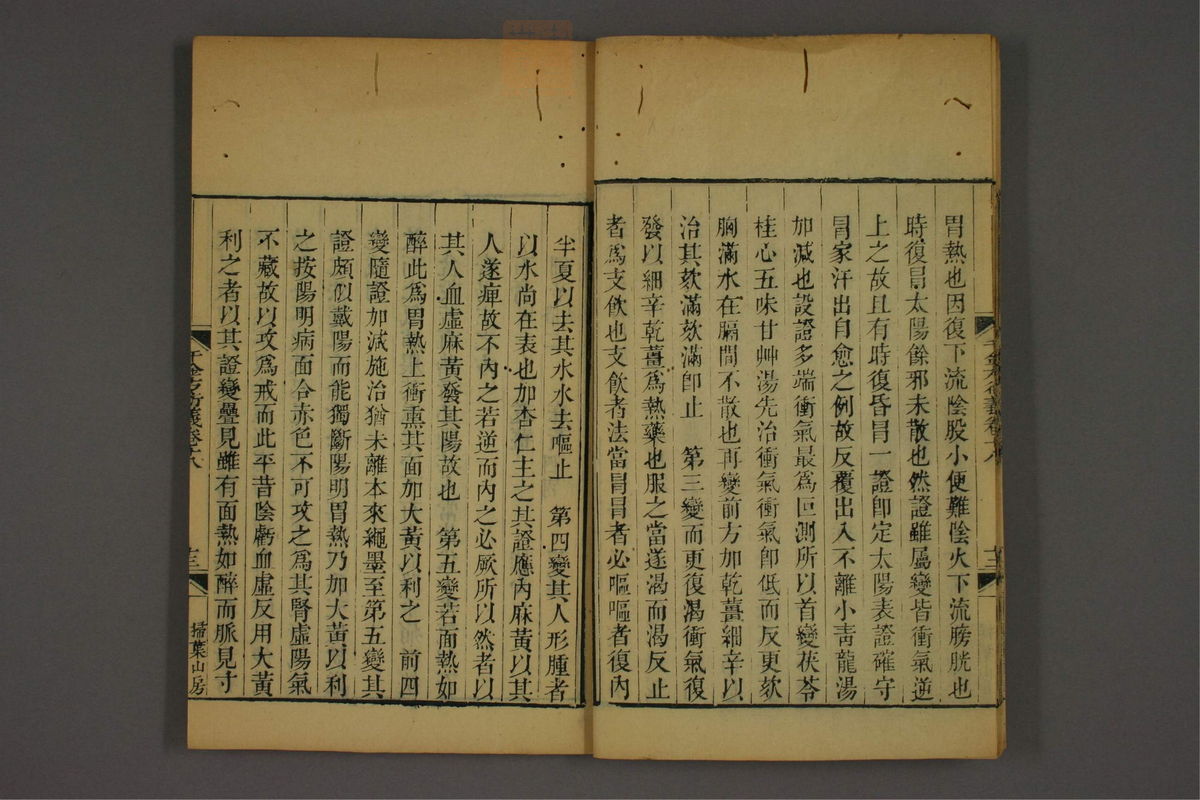 胃熱也因復下流陰股小便難陰火下流膀胱也
時復冒太陽餘邪未散也然證雖屬變皆衝氣逆
上之故且有時復昏冒一證卽定太陽表證確守
冒家汗出自愈之例故反覆出入不離小靑龍湯
加減也設證多端衝氣最爲叵測所以首變茯苓
桂心五味甘艸湯先治衝氣衝氣卽低而反更欬
胸滿水在膈間不散也再變前方加乾薑細辛以
治其欬滿欬滿卽止　第三變而更復渴衝氣復
發以細辛乾薑爲熱藥也服之當遂渴而渴反止
者爲支飮也支飮者法當冒冒者必嘔嘔者復內
半夏以去其水水去嘔止　第四變其人形腫者
以水尚在表也加杏仁主之其證應內麻黃以其
人遂痺故不內之若逆而內之必厥所以然者以
其人血虛麻黃發其陽故也　第五變若面熱如
醉此爲胃熱上衝熏其面加大黃以利之　前四
變隨證加減施治猶未離本來繩墨至第五變其
證頗似戴陽而能獨斷陽明胃熱乃加大黃以利
之按陽明病面合赤色不可攻之爲其腎虛陽氣
不藏故以攻爲戒而此平昔陰虧血虛反用大黃
利之者以其證變疊見雖有面熱如醉而脈見寸
千金方衍義卷十八
十三
掃葉山房